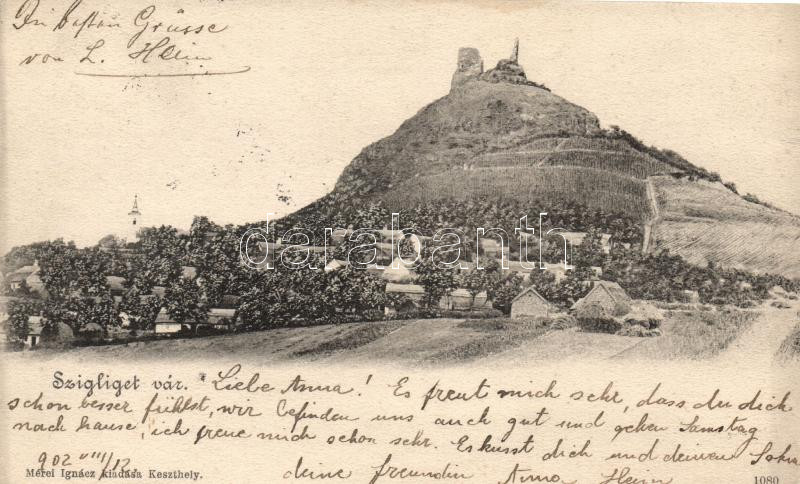 Die besten Grüsse
von L. Heim
darabanth
Szigliget vár. Liebe Anna! Es freut mich sehr, dass du dich
schon besser fühlst, wir befinden uns auch gut und gehen Samstag
nach hause, ich freue mich schon sehr. Es küsst dich und deinen Sohn
902 VIII/12 deine freundin Anna Heim
Mérei Ignácz kiadása Keszthely. 1080